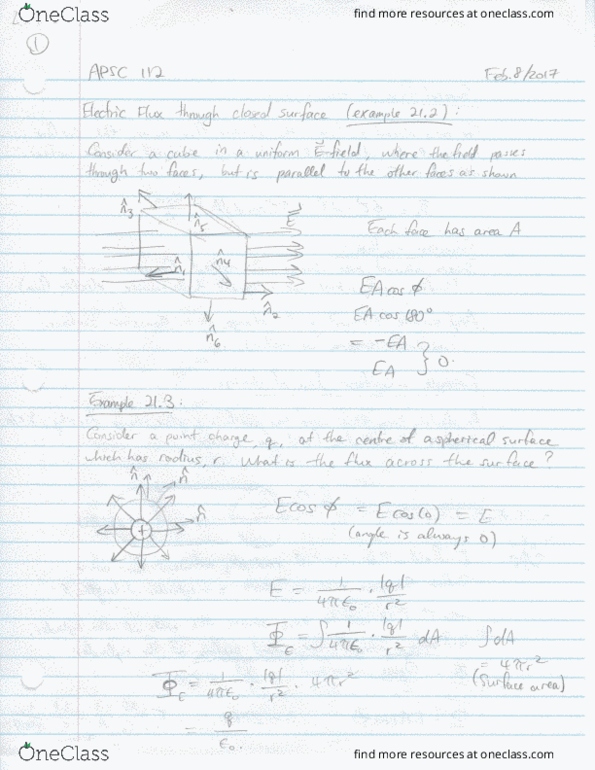 OneClass
find more resources at oneclass.com
1
APSC 112
Feb. 8/2017
Electric Flux through closed surface (example 21.2):
Consider a cube in a uniform E⃗-field, where the field passes
through two faces, but is parallel to the other faces as shown
n̂₃
n̂₅
E⃗
Each face has area A
n̂₁
n̂₄
n̂₂
n̂₆
EA cos ϕ
EA cos 180°
= -EA
EA } 0.
Example 21.3:
Consider a point charge, q, at the centre of a spherical surface
which has radius, r. What is the flux across the surface?
n̂
n̂
n̂
+
E cos ϕ = E cos(0) = E
(angle is always 0)
E = 1/4πε₀ · |q|/r²
Φ_E = ∫ 1/4πε₀ · |q|/r² dA
∫dA
= 4πr²
(surface area)
Φ_E = 1/4πε₀ · |q|/r² · 4πr²
= q/ε₀.
OneClass
find more resources at oneclass.com